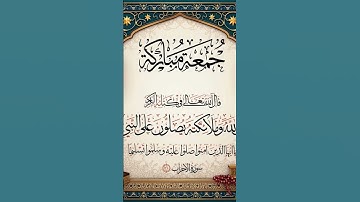 جُمُعَة مُبَارَكَة
قال الله تعالى في كتابه الكريم
لله وملائكته يصلون على النبي
يا أيها الذين آمنوا صلوا عليه وسلموا تسليما
سورة الأحزاب